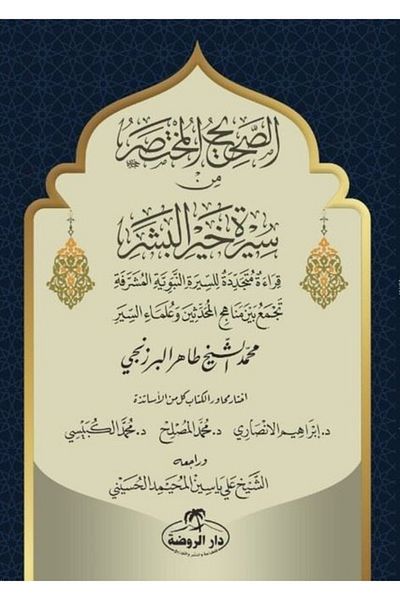 الصَّحِيحُ المُخْتَصَرُ
مِنْ
سِيرَةِ خَيْرِ البَشَرِ
قِرَاءَةٌ مُتَجَدِّدَةٌ لِلسِّيرَةِ النَّبَوِيَّةِ المُشَرَّفَةِ
تَجْمَعُ بَيْنَ مَنَاهِجِ المُحَدِّثِينَ وَعُلَمَاءِ السِّيَرِ
محمد الشيخ طاهر البرزنجي
اختار محاور الكتاب كل من الأساتذة
د. إبراهيم الانصاري د. محمد المصلح د. محمد الكبيسي
وراجعه
الشيخ علي ياسين المحيمد الحسيني
دار الروضة